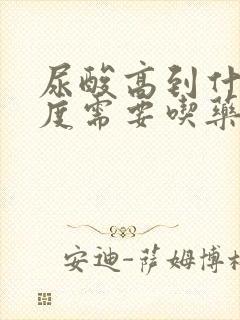 尿酸高到什
度需要喫藥
安迪-萨姆博